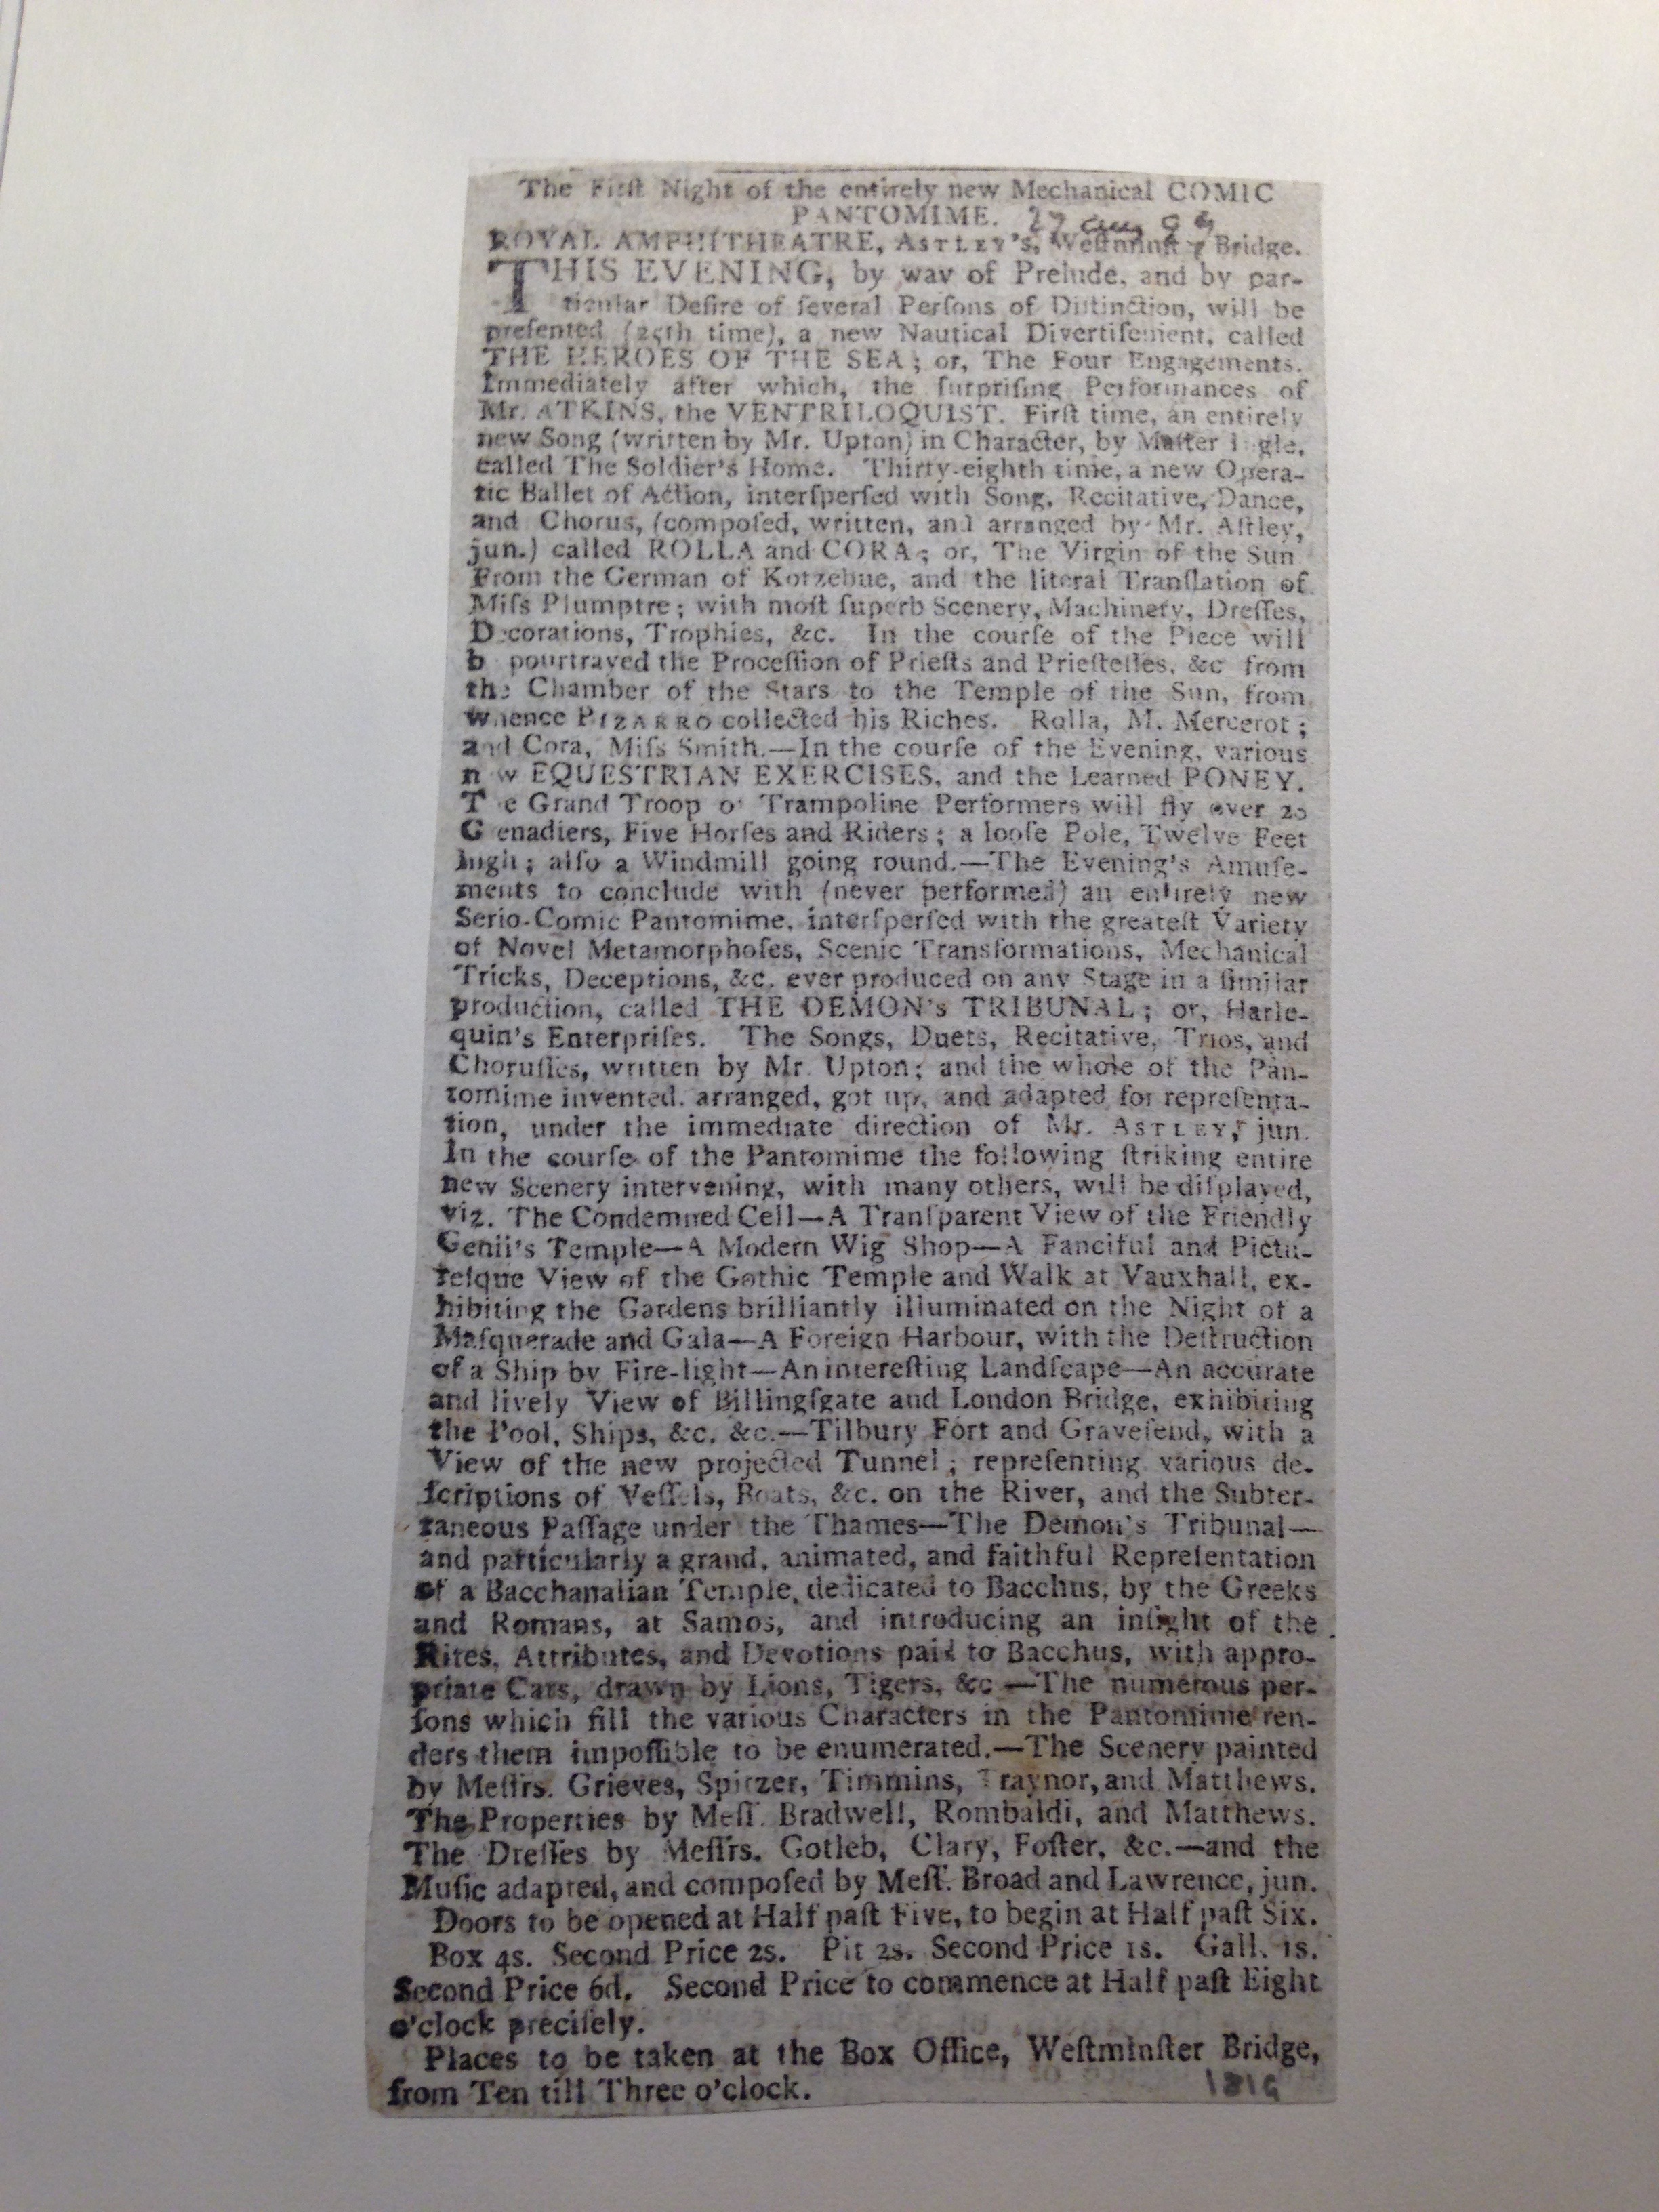 The Firſt Night of the entirely new Mechanical COMIC
PANTOMIME. 27 aug 99
ROYAL AMPHITHEATRE, ASTLEY's, Weſtminſter Bridge.
THIS EVENING, by way of Prelude, and by par-
ticular Deſire of ſeveral Perſons of Diſtinction, will be
preſented (25th time), a new Nautical Divertiſement, called
THE HEROES OF THE SEA; or, The Four Engagements.
Immediately after which, the ſurpriſing Performances of
Mr. ATKINS, the VENTRILOQUIST. Firſt time, an entirely
new Song (written by Mr. Upton) in Character, by Maſter
called The Soldier's Home. Thirty-eighth time, a new Opera-
tic Ballet of Action, interſperſed with Song, Recitative, Dance,
and Chorus, (compoſed, written, and arranged by Mr. Aſtley,
jun.) called ROLLA and CORA; or, The Virgin of the Sun
From the German of Kotzebue, and the literal Tranſlation of
Miſs Plumptre; with moſt ſuperb Scenery, Machinery, Dreſſes,
Decorations, Trophies, &c. In the courſe of the Piece will
b pourtrayed the Proceſſion of Prieſts and Prieſteſſes, &c from
the Chamber of the Stars to the Temple of the Sun, from
whence PIZARRO collected his Riches. Rolla, M. Mercerot;
and Cora, Miſs Smith.—In the courſe of the Evening, various
new EQUESTRIAN EXERCISES, and the Learned PONEY.
The Grand Troop of Trampoline Performers will fly over 20
Grenadiers, Five Horſes and Riders; a looſe Pole, Twelve Feet
high; alſo a Windmill going round.—The Evening's Amuſe-
ments to conclude with (never performed) an entirely new
Serio-Comic Pantomime, interſperſed with the greateſt Variety
of Novel Metamorphoſes, Scenic Transformations, Mechanical
Tricks, Deceptions, &c. ever produced on any Stage in a ſimilar
production, called THE DEMON's TRIBUNAL; or, Harle-
quin's Enterpriſes. The Songs, Duets, Recitative, Trios, and
Choruſſes, written by Mr. Upton; and the whole of the Pan-
tomime invented, arranged, got up, and adapted for repreſenta-
tion, under the immediate direction of Mr. ASTLEY, jun.
In the courſe of the Pantomime the following ſtriking entire
new Scenery intervening, with many others, will be diſplayed,
viz. The Condemned Cell—A Tranſparent View of the Friendly
Genii's Temple—A Modern Wig Shop—A Fanciful and Pictu-
reſque View of the Gothic Temple and Walk at Vauxhall, ex-
hibiting the Gardens brilliantly illuminated on the Night of a
Maſquerade and Gala—A Foreign Harbour, with the Deſtruction
of a Ship by Fire-light—An intereſting Landſcape—An accurate
and lively View of Billingſgate and London Bridge, exhibiting
the Pool, Ships, &c. &c.—Tilbury Fort and Graveſend, with a
View of the new projected Tunnel; repreſenting various de-
ſcriptions of Veſſels, Boats, &c. on the River, and the Subter-
raneous Paſſage under the Thames—The Demon's Tribunal—
and particularly a grand, animated, and faithful Repreſentation
of a Bacchanalian Temple, dedicated to Bacchus, by the Greeks
and Romans, at Samos, and introducing an inſight of the
Rites, Attributes, and Devotions paid to Bacchus, with appro-
priate Cars, drawn by Lions, Tigers, &c.—The numerous per-
ſons which fill the various Characters in the Pantomime ren-
ders them impoſſible to be enumerated.—The Scenery painted
by Meſſrs. Grieves, Spitzer, Timmins, Traynor, and Matthews.
The Properties by Meſſ. Bradwell, Rombaldi, and Matthews.
The Dreſſes by Meſſrs. Gotleb, Clary, Foſter, &c.—and the
Muſic adapted, and compoſed by Meſſ. Broad and Lawrence, jun.
Doors to be opened at Half paſt Five, to begin at Half paſt Six.
Box 4s. Second Price 2s. Pit 2s. Second Price 1s. Gall. 1s.
Second Price 6d. Second Price to commence at Half paſt Eight
o'clock preciſely.
Places to be taken at the Box Office, Weſtminſter Bridge,
from Ten till Three o'clock.